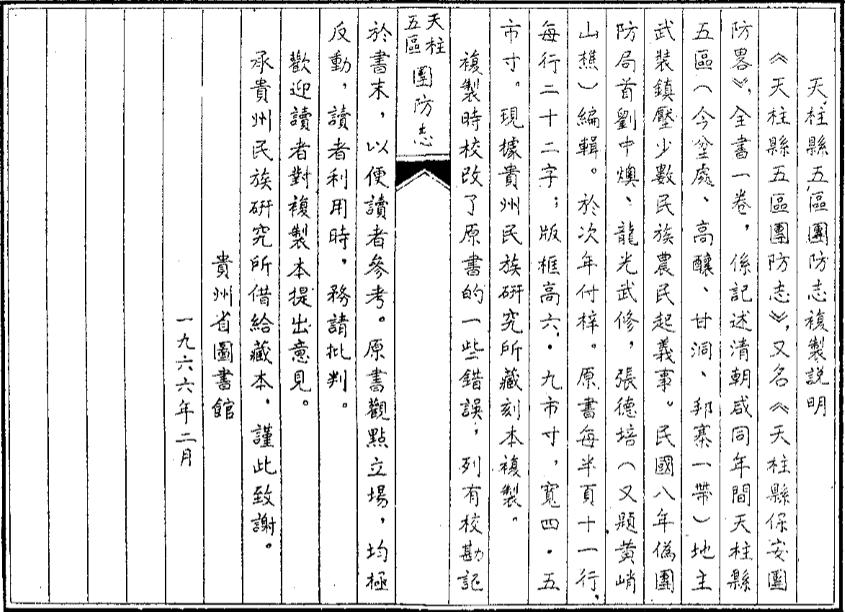 天柱縣五區團防志複製説明
《天柱縣五區團防志》，又名《天柱縣保安團
防畧》，全書一卷，係記述清朝咸同年間天柱縣
五區（今坌處、高釀、甘洞、邦寨一帶）地主
武裝鎮壓少數民族農民起義事。民國八年偽團
防局首劉中燠、龍光武修，張德培（又題黄峭
山樵）編輯。於次年付梓。原書每半頁十一行，
每行二十二字；版框高六·九市寸，寬四·五
市寸。現據貴州民族研究所藏刻本複製。
複製時校改了原書的一些錯誤，列有校勘記
天柱
五區 團防志
於書末，以便讀者參考。原書觀點立場，均極
反動，讀者利用時，務請批判。
歡迎讀者對複製本提出意見。
承貴州民族研究所借給藏本，謹此致謝。
貴州省圖書館
一九六六年二月